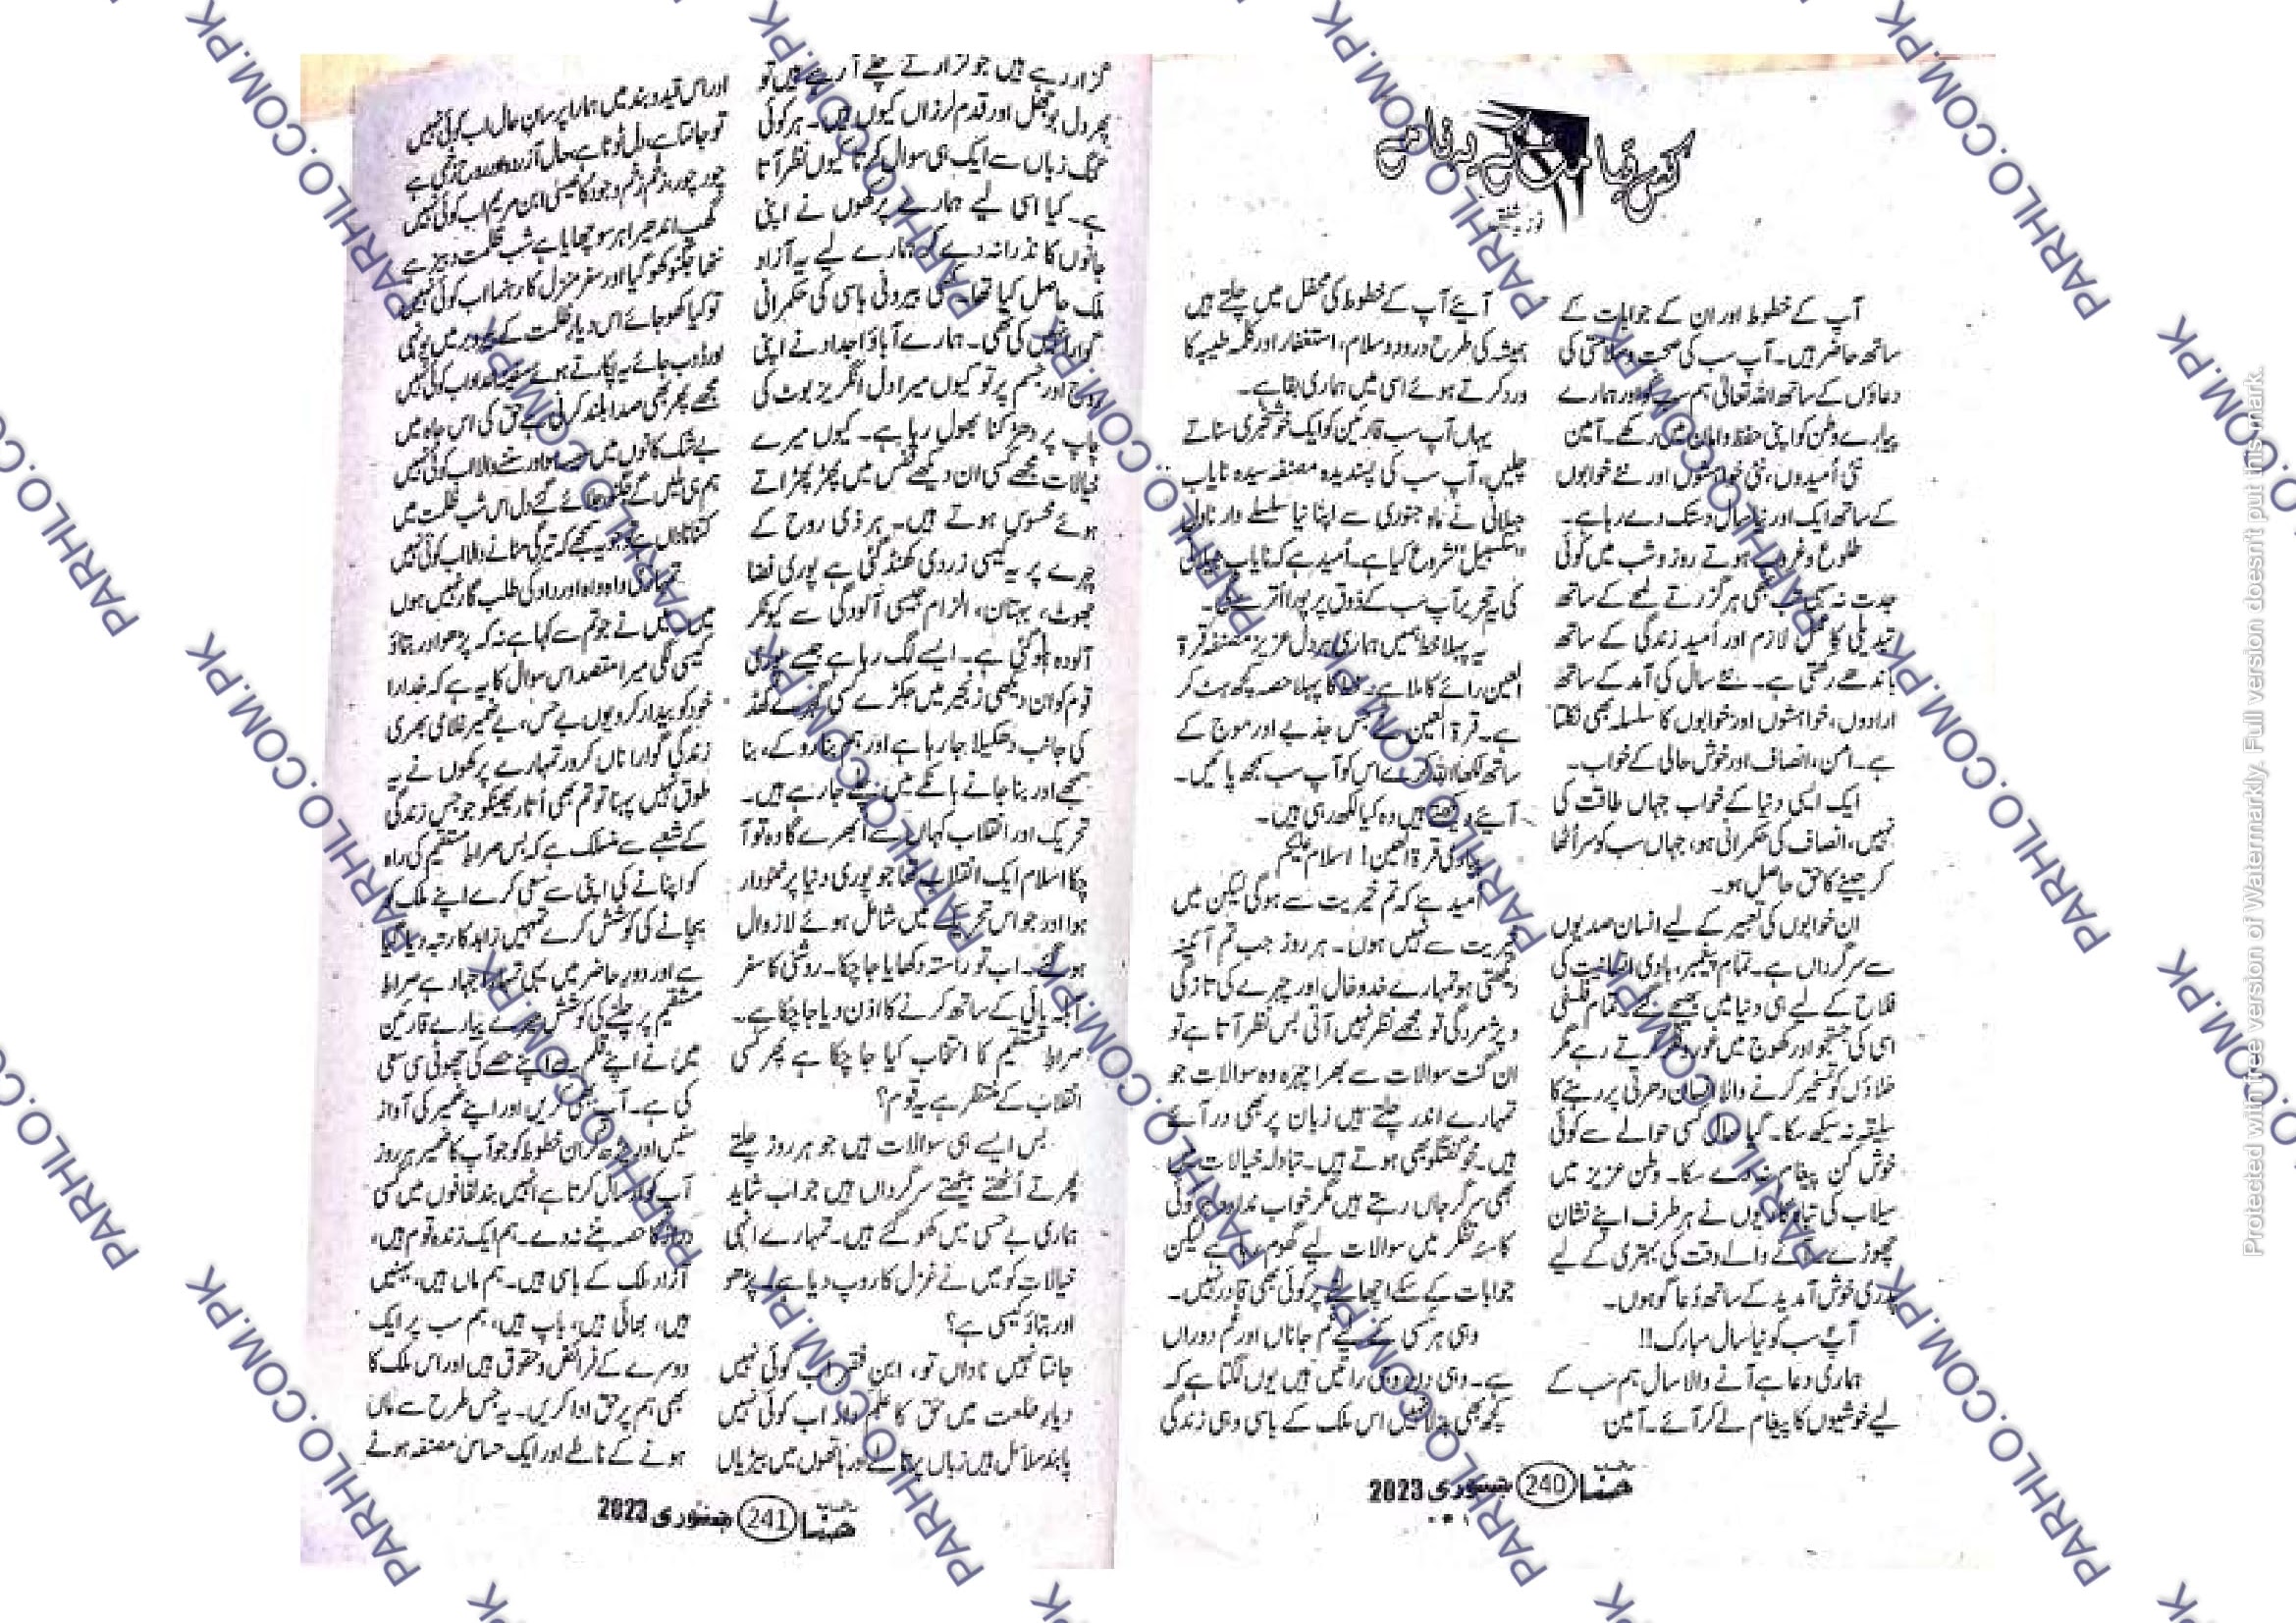 کس قیامت کے یہ نامے
فوزیہ شفیق
آپ کے خطوط اور ان کے جوابات کے
ساتھ حاضر ہیں۔ آپ سب کی صحت و سلامتی کی
دعاؤں کے ساتھ اللہ تعالیٰ ہم سب کو اور ہمارے
پیارے وطن کو اپنی حفظ و امان میں رکھے۔ آمین
نئی اُمیدوں، نئی خواہشوں اور نئے خوابوں
کے ساتھ ایک اور نیا سال دستک دے رہا ہے۔
طلوع و غروب ہوتے روز و شب میں کوئی
جدت نہ سہی تب بھی ہر گزرتے لمحے کے ساتھ
تبدیلی کا عمل لازم اور اُمید زندگی کے ساتھ
باندھے رکھتی ہے۔ نئے سال کی آمد کے ساتھ
ارادوں، خواہشوں اور خوابوں کا سلسلہ بھی نکلتا
ہے۔ امن، انصاف اور خوش حالی کے خواب۔
ایک ایسی دنیا کے خواب جہاں طاقت کی
نہیں، انصاف کی حکمرانی ہو، جہاں سب کو سر اُٹھا
کر جینے کا حق حاصل ہو۔
ان خوابوں کی تعبیر کے لیے انسان صدیوں
سے سرگرداں ہے۔ تمام پیغمبر، ہادی انسانیت کی
فلاح کے لیے ہی دنیا میں بھیجے گئے۔ تمام فلسفی
اسی کی جستجو اور کھوج میں غور و فکر کرتے رہے مگر
خلاؤں کو تسخیر کرنے والا انسان دھرتی پر رہنے کا
سلیقہ نہ سیکھ سکا۔ گیا سال کسی حوالے سے کوئی
خوش کن پیغام نہ دے سکا۔ وطن عزیز میں
سیلاب کی تباہ کاریوں نے ہر طرف اپنے نشان
چھوڑے۔ آنے والے وقت کی بہتری کے لیے
خوش آمدید کے ساتھ دُعا گو ہوں۔
آپ سب کو نیا سال مبارک!!
ہماری دعا ہے آنے والا سال ہم سب کے
لیے خوشیوں کا پیغام لے کر آئے۔ آمین
آیئے آپ کے خطوط کی محفل میں چلتے ہیں
ہمیشہ کی طرح درود و سلام، استغفار اور کلمہ طیبہ کا
ورد کرتے ہوئے اسی میں ہماری بقا ہے۔
یہاں آپ سب قارئین کو ایک خوشخبری سناتے
چلیں، آپ سب کی پسندیدہ مصنفہ سیدہ نایاب
جیلانی نے ماہ جنوری سے اپنا نیا سلسلے دار ناول
شروع کیا ہے۔ اُمید ہے کہ نایاب جیلانی
کی یہ تحریر آپ سب کے ذوق پر پورا اُترے گی۔
یہ پہلا خط ہمیں ہماری ہر دل عزیز مصنفہ قرۃ
العین رائے کا ملا ہے۔ خط کا پہلا حصہ کچھ ہٹ کر
ہے۔ قرۃ العین نے جس جذبے اور سوچ کے
ساتھ لکھا اللہ کرے اس کو آپ سب سمجھ پائیں۔
آیئے دیکھتے ہیں وہ کیا لکھ رہی ہیں۔
پیاری قرۃ العین! اسلام علیکم
اُمید ہے کہ تم خیریت سے ہوگی لیکن میں
خیریت سے نہیں ہوں۔ ہر روز جب تم آئینہ
دیکھتی ہو تمہارے خدوخال اور چہرے کی تازگی
و پژمردگی تو مجھے نظر نہیں آتی بس نظر آتا ہے تو
ان گنت سوالات سے بھرا چہرہ وہ سوالات جو
تمہارے اندر چلتے ہیں زبان پر بھی در آئے
ہیں۔ محو گفتگو بھی ہوتے ہیں۔ تبادلہ خیالات میں
بھی سرگرداں رہتے ہیں مگر خواب ندارد ہر کوئی
کاسۂ نظر میں سوالات لیے گھوم رہا ہے لیکن
جوابات کے سکے اچھالنے پر کوئی بھی قادر نہیں۔
وہی ہر کسی کے لیے غم جاناں اور غم دوراں
ہے۔ وہی دن وہی راتیں ہیں یوں لگتا ہے کہ
کچھ بھی بدلا نہیں اس ملک کے باسی وہی زندگی
حنا 240 جنوری 2023
گزار رہے ہیں جو گزارتے چلے آ رہے ہیں تو
پھر دل بوجھل اور قدم لرزاں کیوں ہیں۔ ہر کوئی
گنگ زباں سے ایک ہی سوال کرتا کیوں نظر آتا
ہے۔ کیا اسی لیے ہمارے پرکھوں نے اپنی
جانوں کا نذرانہ دے کر ہمارے لیے یہ آزاد
ملک حاصل کیا تھا۔ کسی بیرونی باسی کی حکمرانی
گوارا نہیں کی تھی۔ ہمارے آباؤ اجداد نے اپنی
روح اور جسم پر تو کیوں میرا دل انگریز بوٹ کی
چاپ پر دھڑکنا بھول رہا ہے۔ کیوں میرے
خیالات مجھے کسی ان دیکھے قفس میں پھڑپھڑاتے
ہوئے محسوس ہوتے ہیں۔ ہر ذی روح کے
چہرے پر یہ کیسی زردی کھنڈ گئی ہے پوری فضا
جھوٹ، بہتان، الزام جیسی آلودگی سے کیونکر
آلودہ ہو گئی ہے۔ ایسے لگ رہا ہے جیسے پوری
قوم کو ان دیکھی زنجیر میں جکڑے کسی گہرے کھڈ
کی جانب دھکیلا جا رہا ہے اور ہم بنا روکے، بنا
سمجھے اور بنا جانے ہانکے میں چلے جا رہے ہیں۔
تحریک اور انقلاب کہاں سے اُبھرے گا وہ تو آ
چکا اسلام ایک انقلاب تھا جو پوری دنیا پر نمودار
ہوا اور جو اس تحریک میں شامل ہوئے لازوال
ہو گئے۔ اب تو راستہ دکھایا جا چکا۔ روشنی کا سفر
آبلہ پائی کے ساتھ کرنے کا اذن دیا جا چکا ہے۔
صراط مستقیم کا انتخاب کیا جا چکا ہے پھر کسی
انقلاب کے منتظر ہے یہ قوم؟
بس ایسے ہی سوالات ہیں جو ہر روز چلتے
پھرتے اُٹھتے بیٹھتے سرگرداں ہیں جواب شاید
ہماری بے حسی میں کھو گئے ہیں۔ تمہارے انہی
خیالات کو میں نے غزل کا روپ دیا ہے۔ پڑھو
اور بتاؤ کیسی ہے؟
جانتا نہیں ناداں تو، ابن اب کوئی نہیں
دیار ظلمت میں حق کا علم دار اب کوئی نہیں
پابند سلاسل ہیں زباں پر تالے اور ہاتھوں میں بیڑیاں
اور اس قید و بند میں ہمارا پرسان حال اب کوئی نہیں
تو جانتا ہے دل ٹوٹا ہے حال آزردہ اور روح زخمی ہے
چور چور، زخم زخم وجود کا عیسیٰ ابن مریم اب کوئی نہیں
گھپ اندھیرا ہر سو چھایا ہے شب ظلمت دبیز ہے
ننھا جگنو کھو گیا اور سفر منزل کا رہنما اب کوئی نہیں
تو کیا کھو جائے اس دیار ظلمت کے میں یونہی
اور ڈوب جائے یہ پکارتے ہوئے اب کوئی نہیں
مجھے پھر بھی صدا بلند کرنی ہے حق کی اس چاہ میں
بے شک کانوں میں سیسہ ہو اور سننے والا اب کوئی نہیں
ہم ہی بنیں گے جگنو دل اس شب ظلمت میں
کتنا ناداں ہے تو جو یہ سمجھے کہ تیرگی مٹانے والا اب کوئی نہیں
تمہاری واہ واہ اور داد کی طلب گار نہیں ہوں
میں۔ میں نے جو تم سے کہا ہے نہ کہ پڑھو اور بتاؤ
کیسی لگی میرا مقصد اس سوال کا یہ ہے کہ خدارا
خود کو بیدار کرو یوں بے حس، بے ضمیر غلامی بھری
زندگی گوارا ناں کرو تمہارے پرکھوں نے یہ
طوق نہیں پہنا تو تم بھی اُتار پھینکو جو جس زندگی
کے شعبے سے منسلک ہے کہ بس صراط مستقیم کی راہ
کو اپنانے کی اپنی سے سعی کرے اپنے ملک کو
بچانے کی کوشش کرے تمہیں زاہد کا رتبہ دیا گیا
ہے اور دور حاضر میں یہی تمہارا جہاد ہے صراط
مستقیم پر چلنے کی کوشش میرے پیارے قارئین
میں نے اپنے قلم سے اپنے حصے کی چھوٹی سی سعی
کی ہے۔ آپ بھی کریں اور اپنے ضمیر کی آواز
سنیں اور پڑھ کر ان خطوط کو جو آپ کا ضمیر ہر روز
آپ کو ارسال کرتا ہے انہیں بند لفافوں میں کسی
دراز کا حصہ بننے نہ دے۔ ہم ایک زندہ قوم ہیں،
آزاد ملک کے باسی ہیں۔ ہم ماں ہیں، بہنیں
ہیں، بھائی ہیں، باپ ہیں، ہم سب پر ایک
دوسرے کے فرائض و حقوق ہیں اور اس ملک کا
بھی ہم پر حق ادا کریں۔ یہ جس طرح سے ماں
ہونے کے ناطے اور ایک حساس مصنفہ ہونے
حنا 241 جنوری 2023
PARHLO.COM.PK
Protected with free version of Watermarkly. Full version doesn't put this mark.